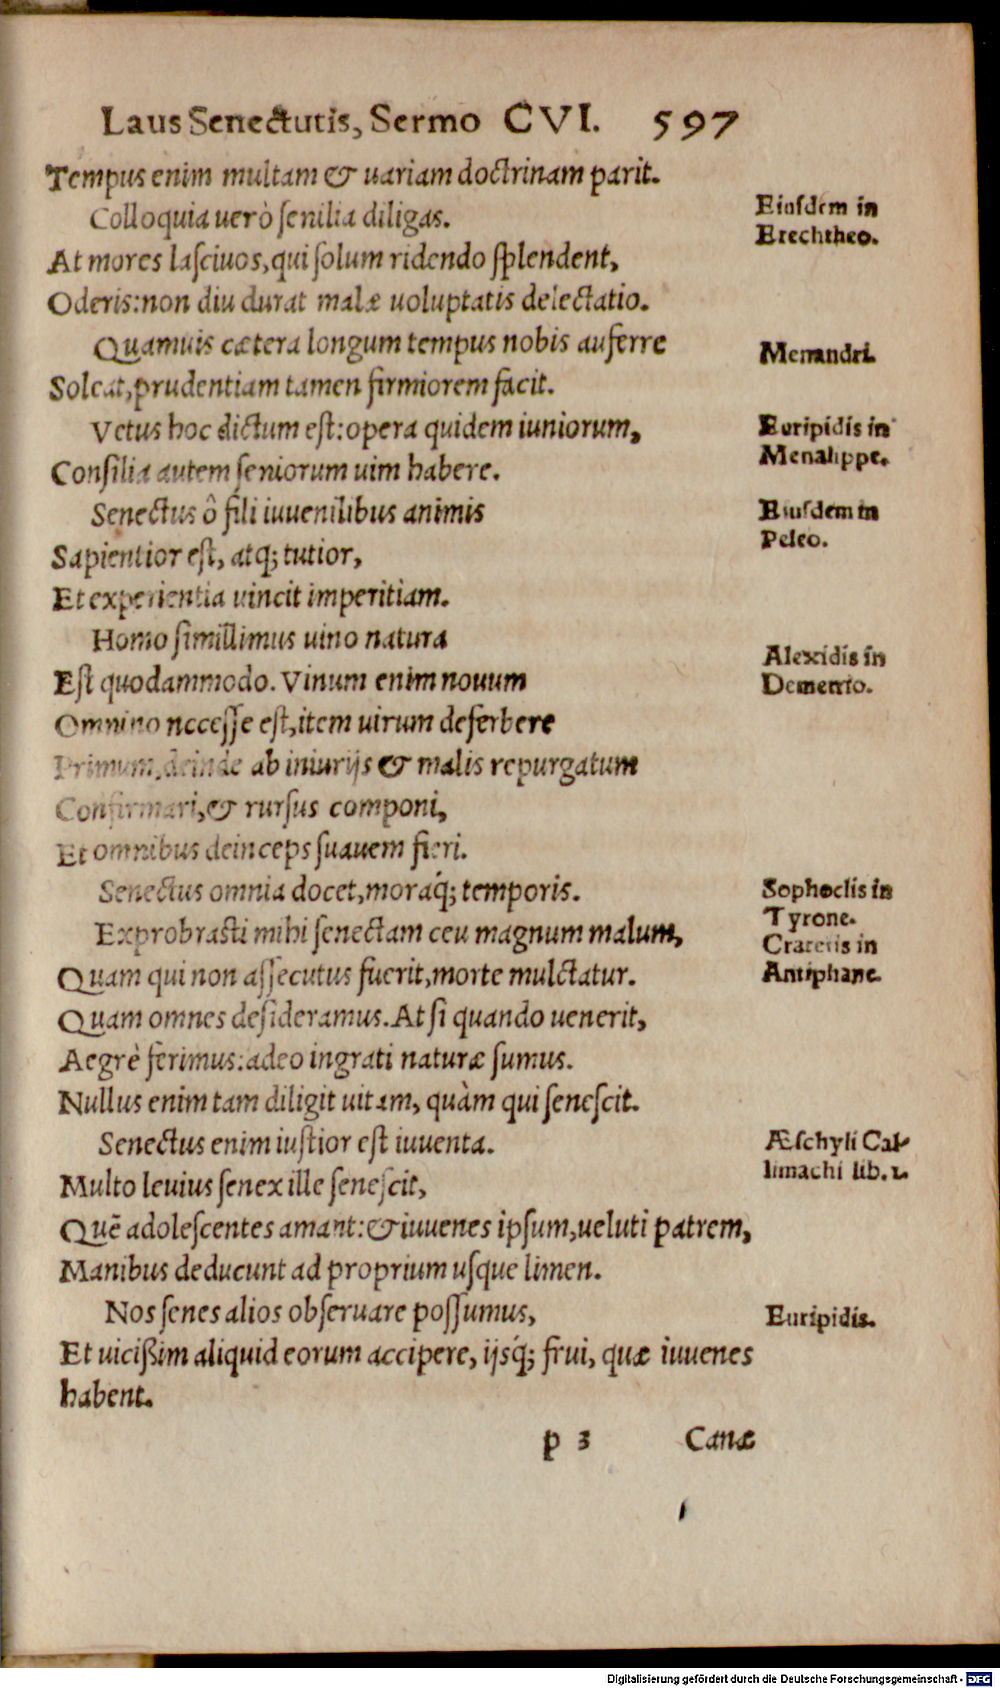 Laus Senectutis, Sermo CVI. 597
Tempus enim multam & uariam doctrinam parit.
Colloquia uerò ſenilia diligas.
Eiuſdem in
Erechtheo.
At mores laſciuos, qui ſolum ridendo ſplendent,
Oderis: non diu durat malæ uoluptatis delectatio.
Quamuis cætera longum tempus nobis auferre
Menandri.
Soleat, prudentiam tamen firmiorem facit.
Vetus hoc dictum eſt: opera quidem iuniorum,
Euripidis in
Menalippe.
Conſilia autem ſeniorum uim habere.
Senectus ô fili iuuenilibus animis
Eiuſdem in
Peleo.
Sapientior eſt, atq; tutior,
Et experientia uincit imperitiam.
Homo ſimillimus uino natura
Alexidis in
Demetrio.
Eſt quodammodo. Vinum enim nouum
Omnino neceſſe eſt, item uirum deferbere
Primum, deinde ab iniurijs & malis repurgatum
Confirmari, & rurſus componi,
Et omnibus deinceps ſuauem fieri.
Senectus omnia docet, moraq́; temporis.
Sophoclis in
Tyrone.
Exprobraſti mihi ſenectam ceu magnum malum,
Cratetis in
Antiphane.
Quam qui non aſſecutus fuerit, morte mulctatur.
Quam omnes deſideramus. At ſi quando uenerit,
Aegrè ferimus: adeo ingrati naturæ ſumus.
Nullus enim tam diligit uitam, quàm qui ſeneſcit.
Senectus enim iuſtior eſt iuuenta.
Æſchyli Cal-
limachi lib. 1.
Multo leuius ſenex ille ſeneſcit,
Quē adoleſcentes amant: & iuuenes ipſum, ueluti patrem,
Manibus deducunt ad proprium uſque limen.
Nos ſenes alios obſeruare poſſumus,
Euripidis.
Et uiciſsim aliquid eorum accipere, ijsq́; frui, quæ iuuenes
habent.
p 3 Canæ
Digitalisierung gefördert durch die Deutsche Forschungsgemeinschaft - DFG